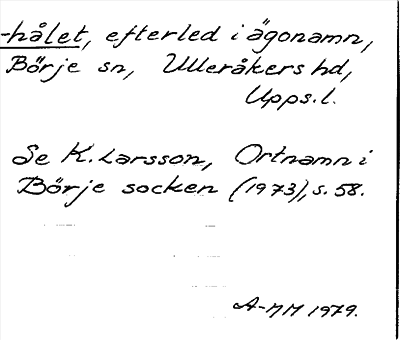 -hålet, efterled i ägonamn,
Börje sn, Ulleråkers hd,
Upps. l.
Se K. Larsson, Ortnamn i
Börje socken (1973), s. 58.
A-MM 1979.